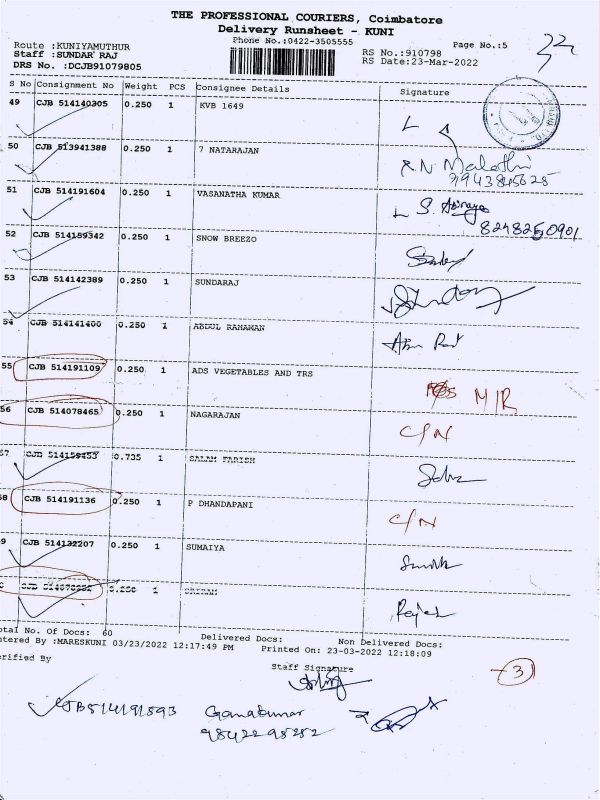 THE PROFESSIONAL COURIERS, Coimbatore
Delivery Runsheet - KUNI
Phone No.:0422-3505555
Page No.:5
Route :KUNIYAMUTHUR
Staff :SUNDAR RAJ
RS No.:910798
DRS No. :DCJB91079805
RS Date:23-Mar-2022
S No Consignment No Weight PCS Consignee Details Signature
49 CJB 514140305 0.250 1 KVB 1649
50 CJB 513941388 0.250 1 7 NATARAJAN
R N Malathi
9943845625
51 CJB 514191604 0.250 1 VASANATHA KUMAR
8248250901
52 CJB 514159342 0.250 1 SNOW BREEZO
53 CJB 514142389 0.250 1 SUNDARAJ
54 CJB 514141400 0.250 1 ABDUL RAHAMAN
55 CJB 514191109 0.250 1 ADS VEGETABLES AND TRS M/R
56 CJB 514078465 0.250 1 NAGARAJAN C/N
57 CJB 514159453 0.735 1 SALAM FARISH
58 CJB 514191136 0.250 1 P DHANDAPANI C/N
59 CJB 514132207 0.250 1 SUMAIYA
1
Rajesh
Total No. Of Docs: 60 Delivered Docs: Non Delivered Docs:
ntered By :MARESKUNI 03/23/2022 12:17:49 PM Printed On: 23-03-2022 12:18:09
erified By
Staff Signature
3
CJB514191593 Ganakumar
9842295252